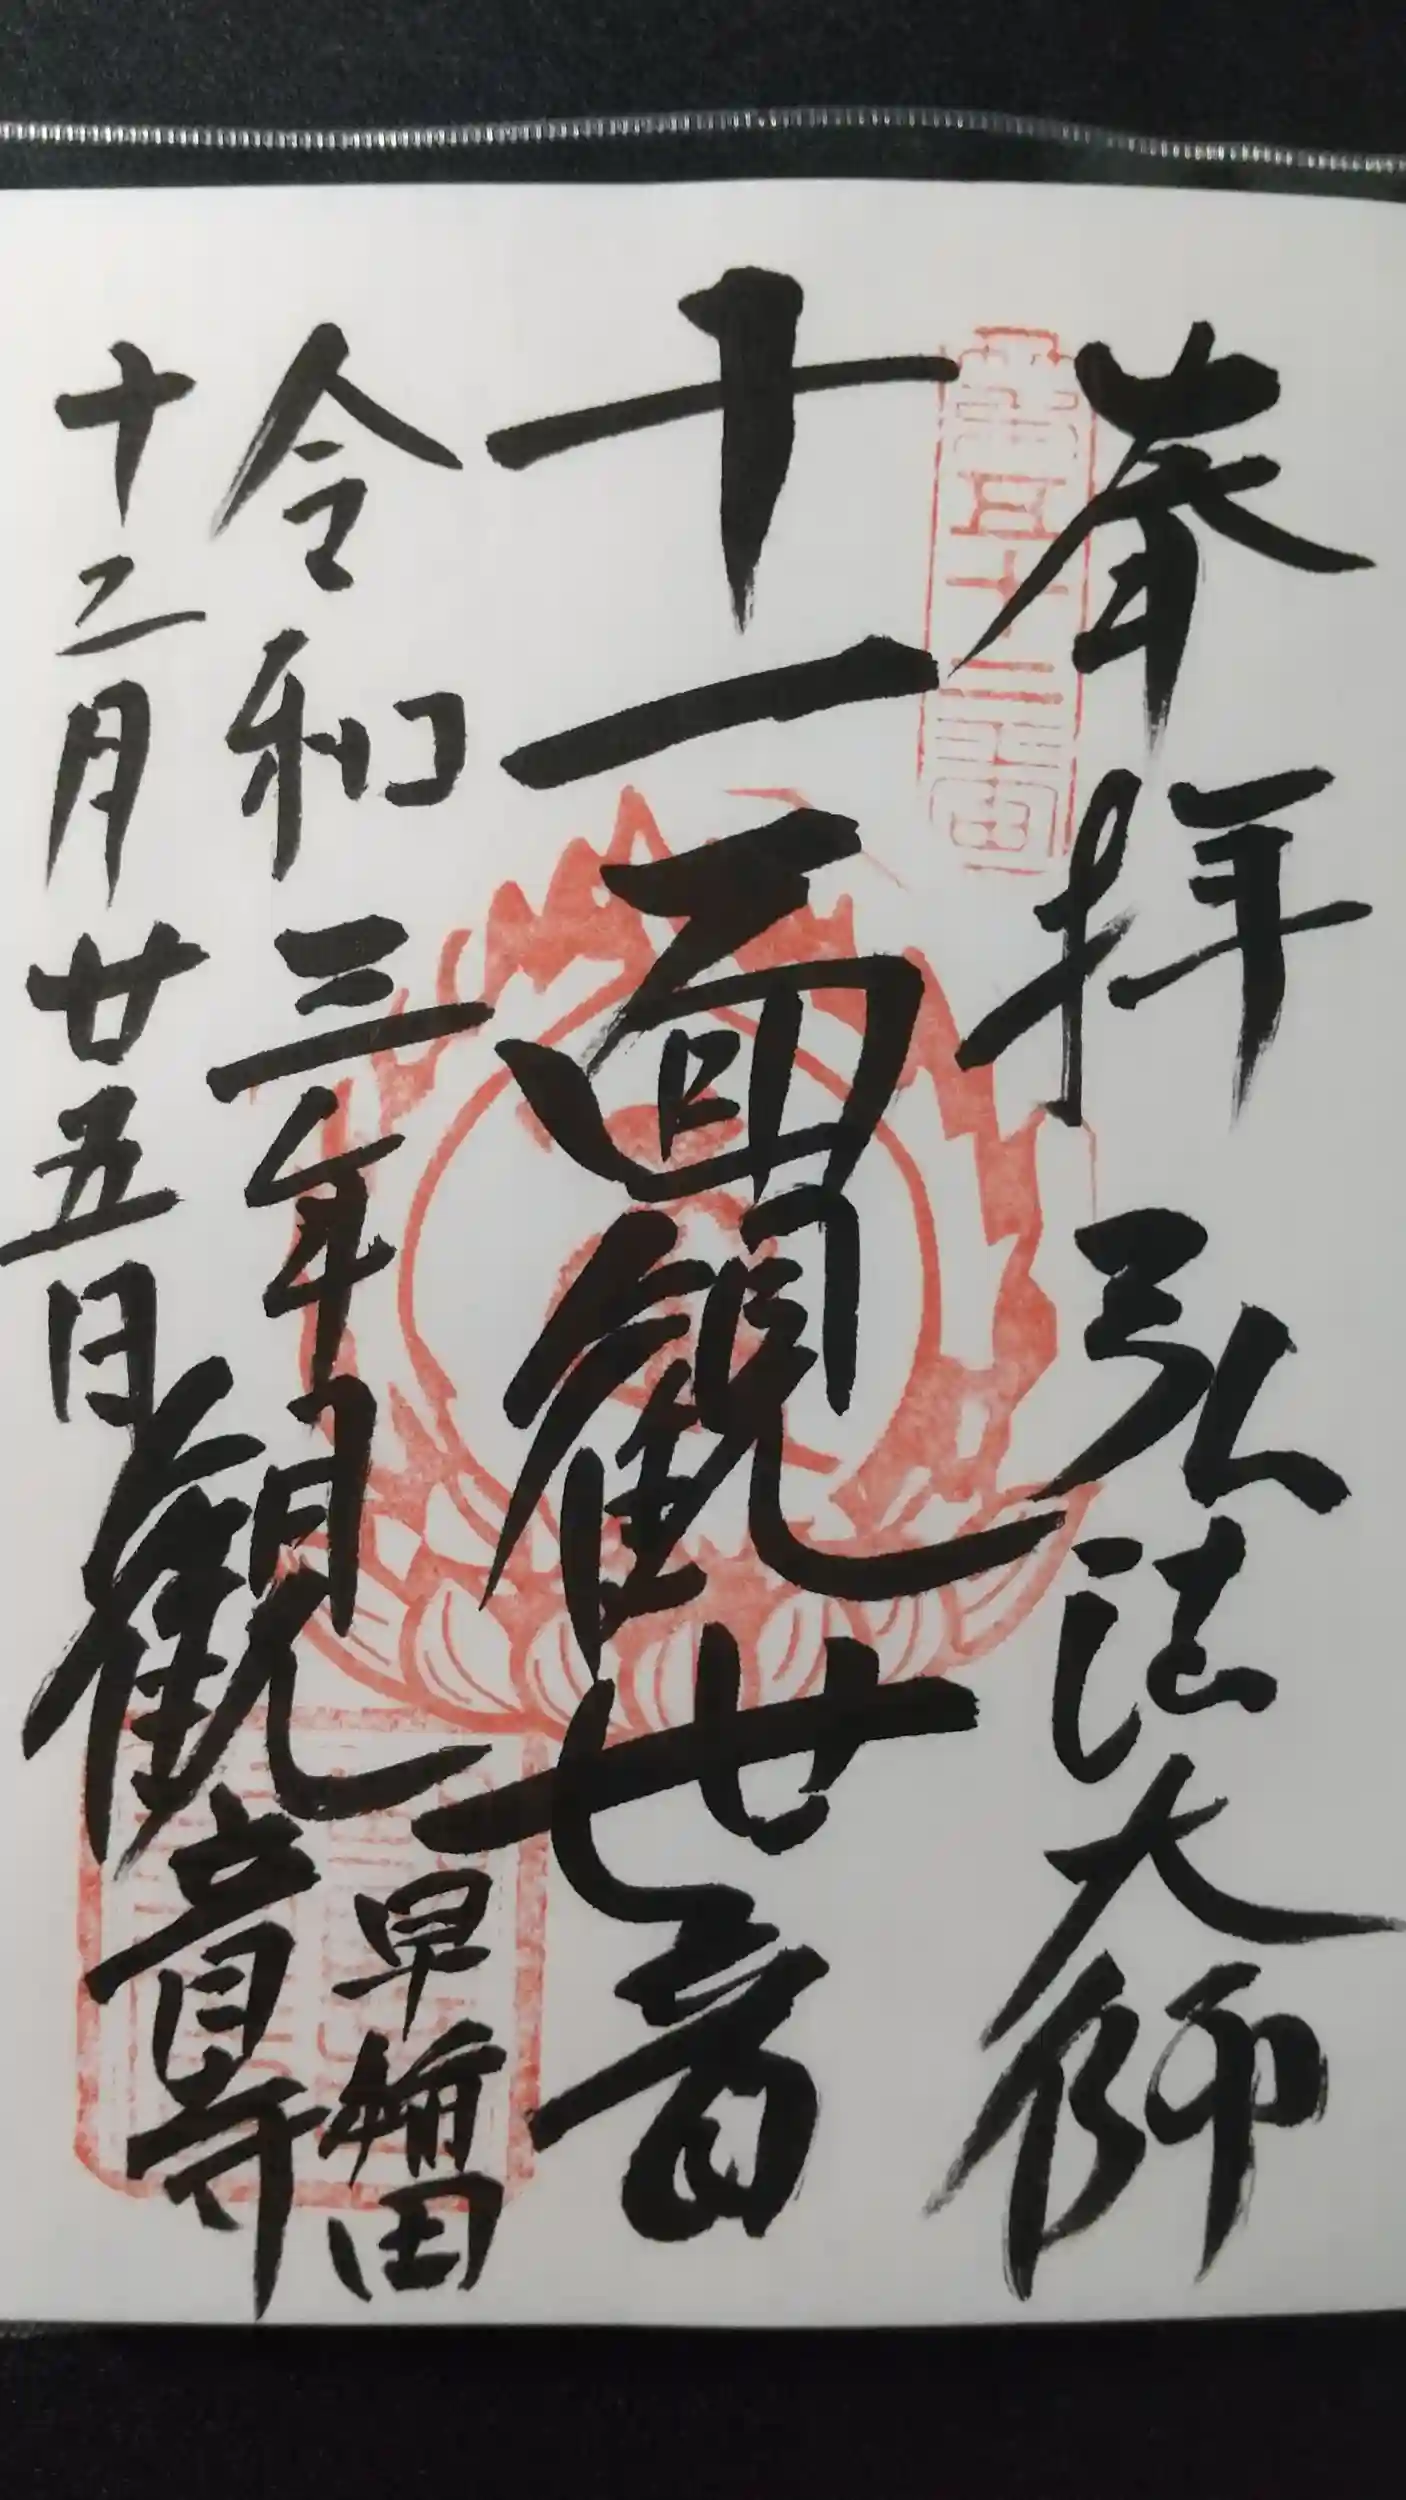 奉拝 弘法大師
第五十二番
十一面観世音
令和三年
早稲田
十二月廿五日
観音寺